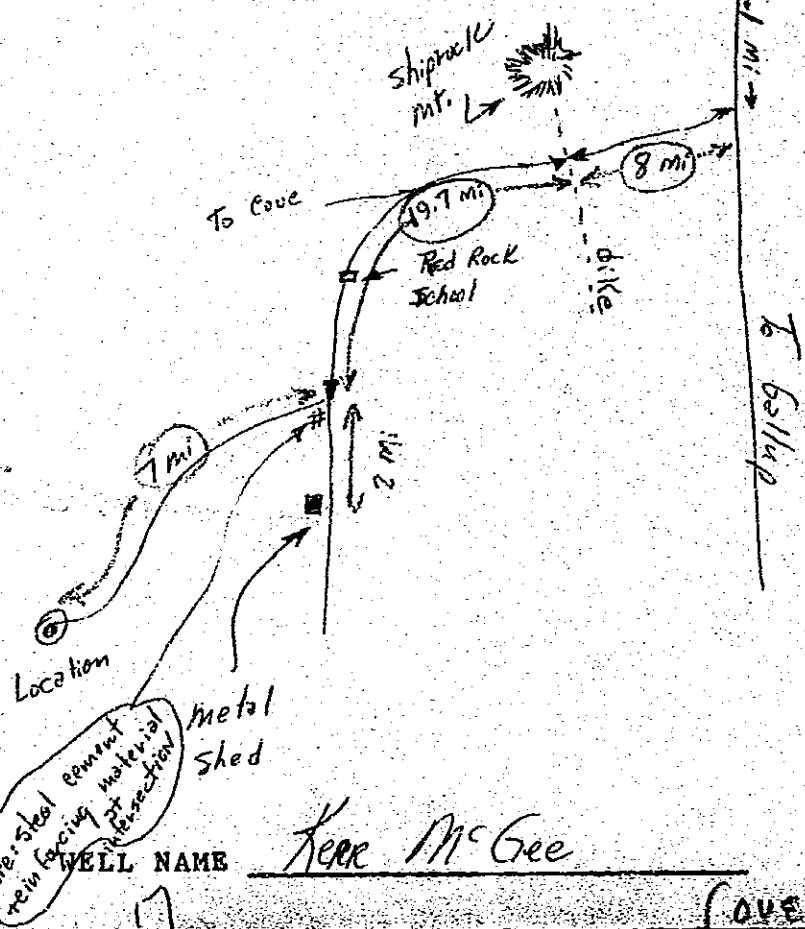 mi →
Shiprock
mt.
8 mi
To Cove
19.7 mi
Red Rock
School
dike
To Gallup
7 mi
#
2 mi
Location
metal
Shed
steel cement
reinforcing material
at
intersection
WELL NAME Kerr McGee